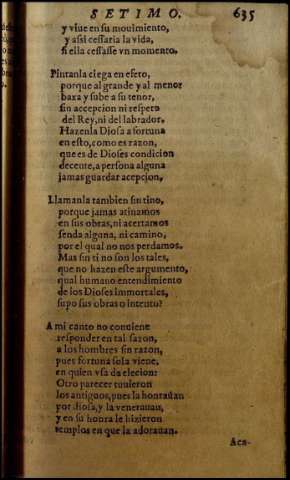 SETIMO. 635
y viue en su mouimiento,
y assi cessaria la vida,
si ella cessasse vn momento.
Pintanla ciega en efeto,
porque al grande y al menor
baxa y sube a su tenor,
sin accepcion ni respeto
del Rey, ni del labrador.
Hazenla Diosa a fortuna
en esto, como es razon,
que es de Dioses condicion
decente, a persona alguna
jamas guardar acepcion.
Llamanla tambien sin tino,
porque jamas atinamos
en sus obras, ni acertamos
senda alguna, ni camino,
por el qual no nos perdamos.
Mas sin ti no son los tales,
que no hazen este argumento,
qual humano entendimiento
de los Dioses immortales,
supo sus obras o intento?
A mi canto no conuiene
responder en tal sazon,
a los hombres sin razon,
pues fortuna sola viene,
en quien vsa de elecion:
Otro parecer tuuieron
los antiguos, pues la honrauan
por diosa, y la venerauan,
y en su honra le hizieron
templos en que la adorauan.
Aca-